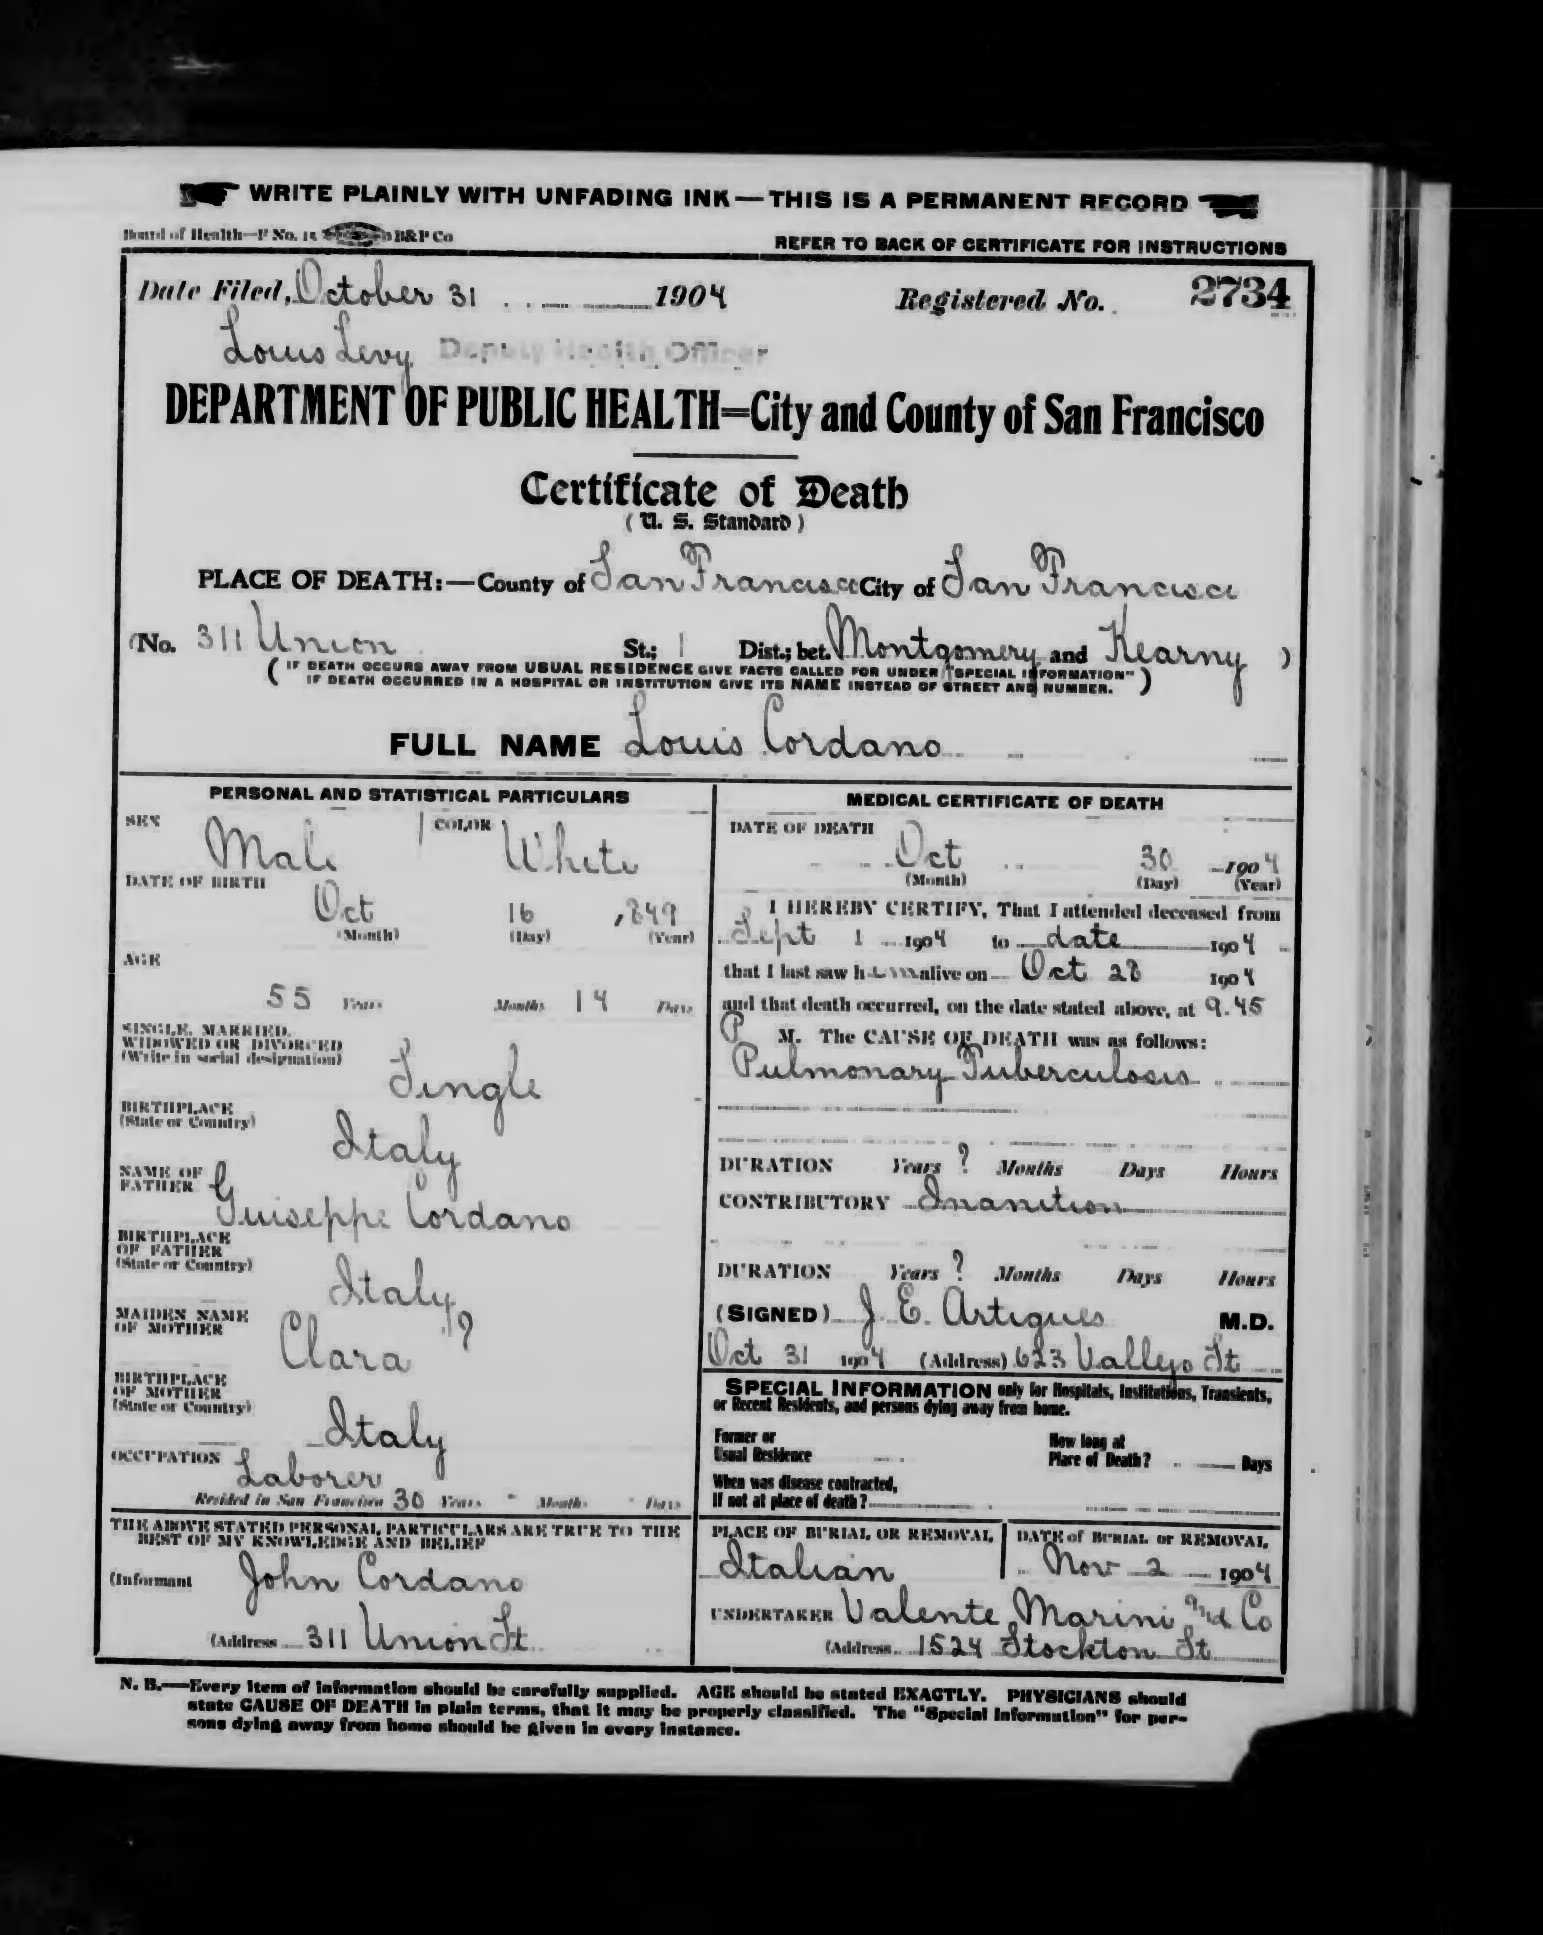 WRITE PLAINLY WITH UNFADING INK—THIS IS A PERMANENT RECORD
Board of Health—F No. 15 B&P Co
REFER TO BACK OF CERTIFICATE FOR INSTRUCTIONS
Date Filed, October 31 1904 Registered No. 2734
Louis Levy Deputy Health Officer
DEPARTMENT OF PUBLIC HEALTH=City and County of San Francisco
Certificate of Death
(U. S. Standard)
PLACE OF DEATH:—County of San Francisco City of San Francisco
(No. 311 Union St.; 1 Dist.; bet. Montgomery and Kearny )
( IF DEATH OCCURS AWAY FROM USUAL RESIDENCE GIVE FACTS CALLED FOR UNDER "SPECIAL INFORMATION"
IF DEATH OCCURRED IN A HOSPITAL OR INSTITUTION GIVE ITS NAME INSTEAD OF STREET AND NUMBER. )
FULL NAME Louis Cordano
PERSONAL AND STATISTICAL PARTICULARS
SEX Male COLOR White
DATE OF BIRTH
Oct 16 ,849
(Month) (Day) (Year)
AGE
55 Years Months 14 Days
SINGLE, MARRIED,
WIDOWED OR DIVORCED
(Write in social designation)
Single
BIRTHPLACE
(State or Country)
Italy
NAME OF
FATHER
Guiseppe Cordano
BIRTHPLACE
OF FATHER
(State or Country)
Italy
MAIDEN NAME
OF MOTHER
Clara ?
BIRTHPLACE
OF MOTHER
(State or Country)
Italy
OCCUPATION
Laborer
Resided in San Francisco 30 Years " Months " Days
THE ABOVE STATED PERSONAL PARTICULARS ARE TRUE TO THE
BEST OF MY KNOWLEDGE AND BELIEF
(Informant John Cordano
(Address 311 Union St
MEDICAL CERTIFICATE OF DEATH
DATE OF DEATH
Oct 30 1904
(Month) (Day) (Year)
I HEREBY CERTIFY, That I attended deceased from
Sept 1 1904 to date 1904
that I last saw him alive on Oct 28 1904
and that death occurred, on the date stated above, at 9.45
P M. The CAUSE OF DEATH was as follows:
Pulmonary Tuberculosis
DURATION Years ? Months Days Hours
CONTRIBUTORY Inanition
DURATION Years ? Months Days Hours
(SIGNED) J. E. Artigues M.D.
Oct 31 1904 (Address) 623 Vallejo St
SPECIAL INFORMATION only for Hospitals, Institutions, Transients,
or Recent Residents, and persons dying away from home.
Former or
Usual Residence
How long at
Place of Death? Days
When was disease contracted,
If not at place of death?
PLACE OF BURIAL OR REMOVAL
Italian
DATE of BURIAL or REMOVAL
Nov 2 1904
UNDERTAKER Valente Marini and Co
(Address 1524 Stockton St
N. B.—Every item of information should be carefully supplied. AGE should be stated EXACTLY. PHYSICIANS should
state CAUSE OF DEATH in plain terms, that it may be properly classified. The "Special Information" for per-
sons dying away from home should be given in every instance.